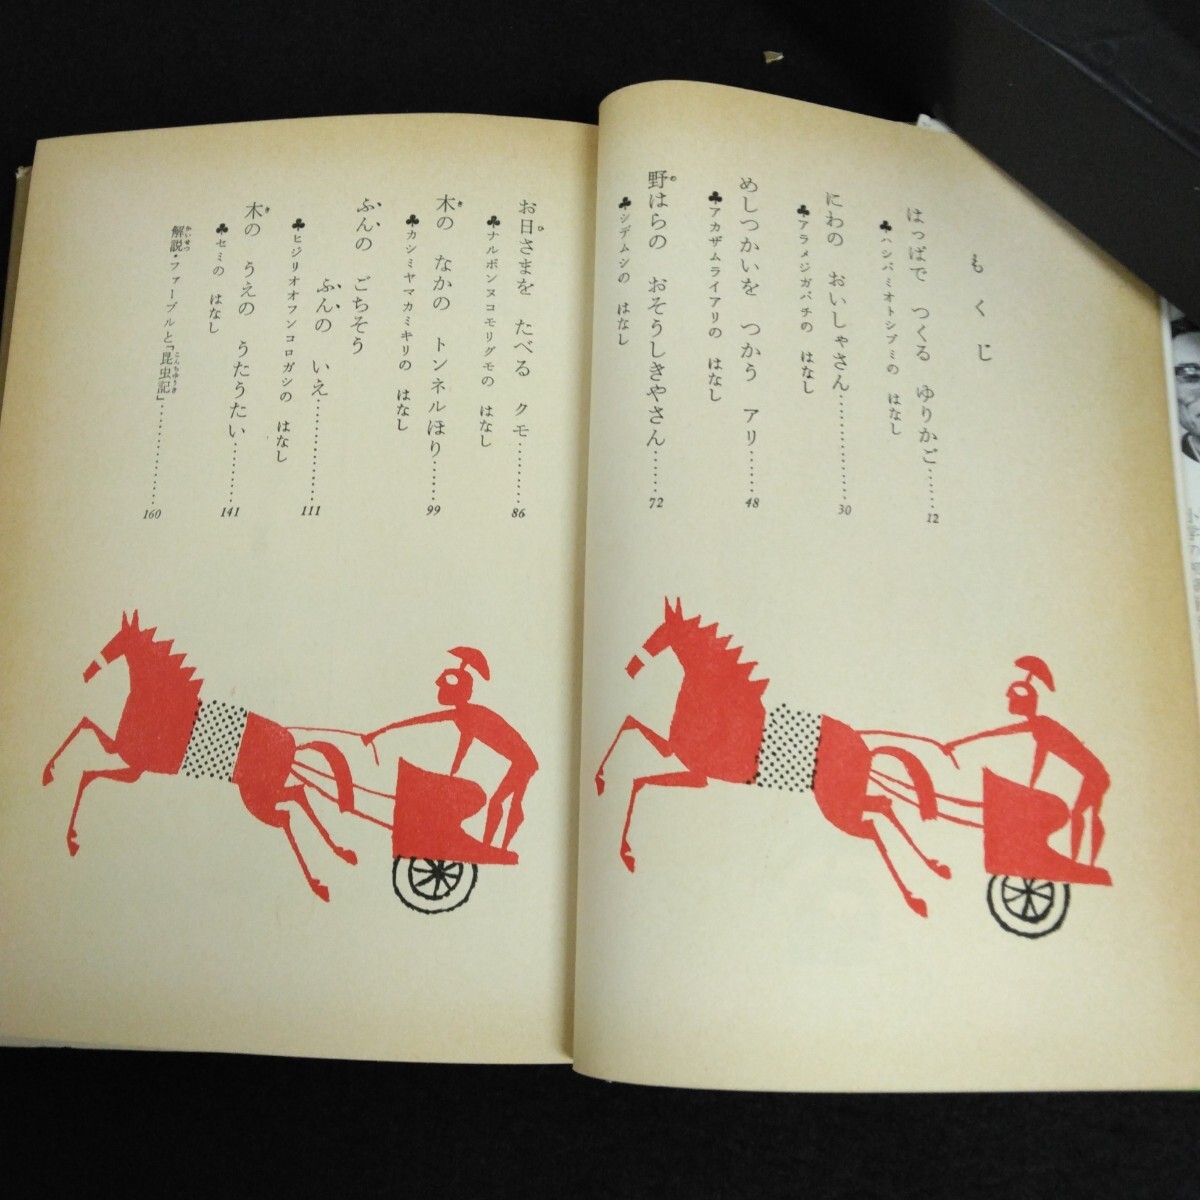 もくじ
はっぱで つくる ゆりかご……12
♣ハシバミオトシブミの はなし
にわの おいしゃさん…………30
♣アラメジガバチの はなし
めしつかいを つかう アリ……48
♣アカザムライアリの はなし
野はらの おそうしきやさん……72
♣シデムシの はなし
お日さまを たべる クモ………86
♣ナルボンヌコモリグモの はなし
木の なかの トンネルほり……99
♣カシミヤマカミキリの はなし
ふんの ごちそう
ふんの いえ…………111
♣ヒジリオオフンコロガシの はなし
木の うえの うたうたい………141
♣セミの はなし
解説・ファーブルと「昆虫記」…………160